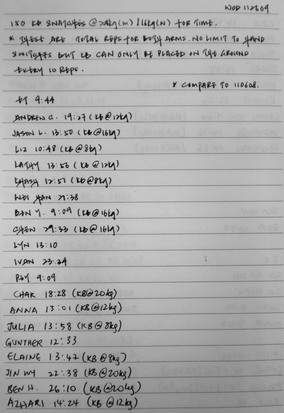 WOD 112809
150 KB SNATCHES @ 24kg(M) / 16kg(W) FOR TIME.
* THESE ARE TOTAL REPS FOR BOTH ARMS. NO LIMIT TO HAND
SWITCHES BUT KB CAN ONLY BE PLACED ON THE GROUND
EVERY 10 REPS.
* COMPARE TO 110608.
9:44
ANDREW C. 19:27 (KB @12kg)
JASON L. 13:50 (KB @16kg)
LIZ 10:48 (KB @8kg)
KATHY 13:56 (KB @12kg)
12:51 (KB@8kg)
WEI HAN 21:38
BEN Y. 9:09 (KB @16kg)
CHEN 29:33 (KB @16kg)
LYN 13:10
IVAN 23:24
ROY 9:09
CHAK 18:28 (KB@20kg)
ANNA 13:01 (KB@12kg)
JULIA 13:58 (KB @8kg)
GUNTHER 12:33
ELAINE 13:47 (KB@8kg)
JIN WY 22:38 (KB@20kg)
BEN H. 26:10 (KB@20kg)
AZHARI 14:24 (KB @12kg)